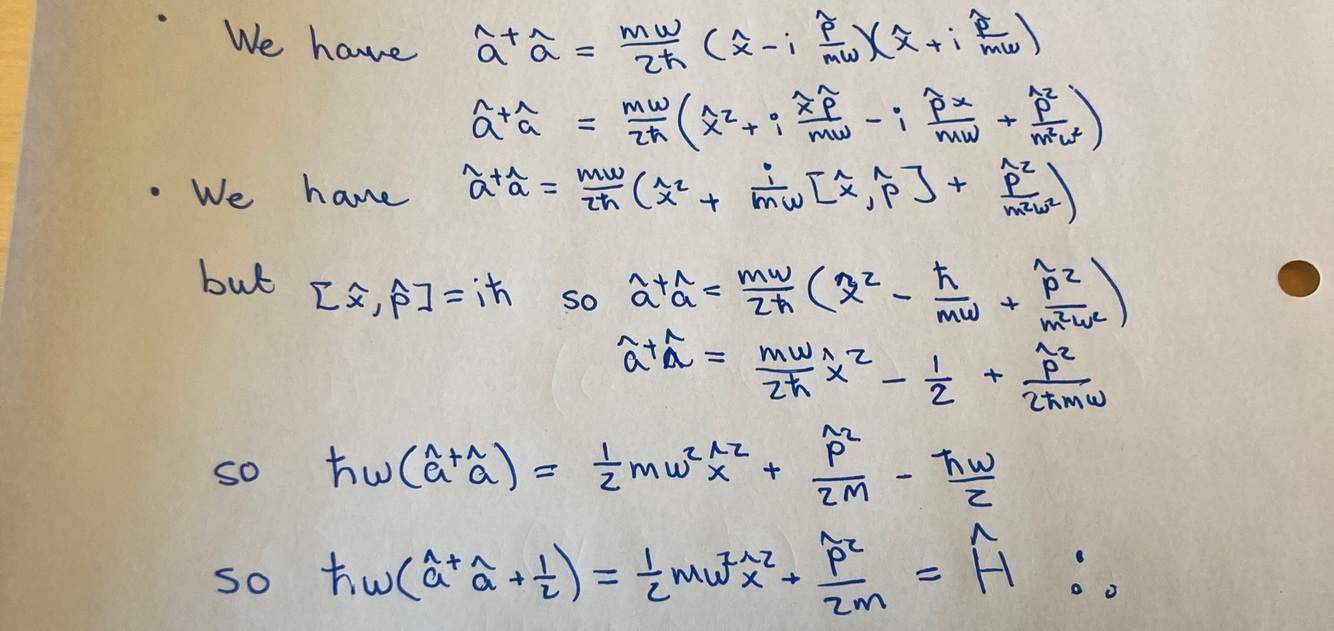 • We have â⁺â = mω/2ħ (x̂ - i p̂/mω)(x̂ + i p̂/mω)
â⁺â = mω/2ħ (x̂² + i x̂p̂/mω - i p̂x/mω + p̂²/m²ω²)
• We have â⁺â = mω/2ħ (x̂² + i/mω [x̂,p̂] + p̂²/m²ω²)
but [x̂,p̂] = iħ so â⁺â = mω/2ħ (x̂² - ħ/mω + p̂²/m²ω²)
â⁺â = mω/2ħ x̂² - 1/2 + p̂²/2ħmω
so ħω(â⁺â) = 1/2 mω²x̂² + p̂²/2m - ħω/2
so ħω(â⁺â + 1/2) = 1/2 mω²x̂² + p̂²/2m = Ĥ ∴